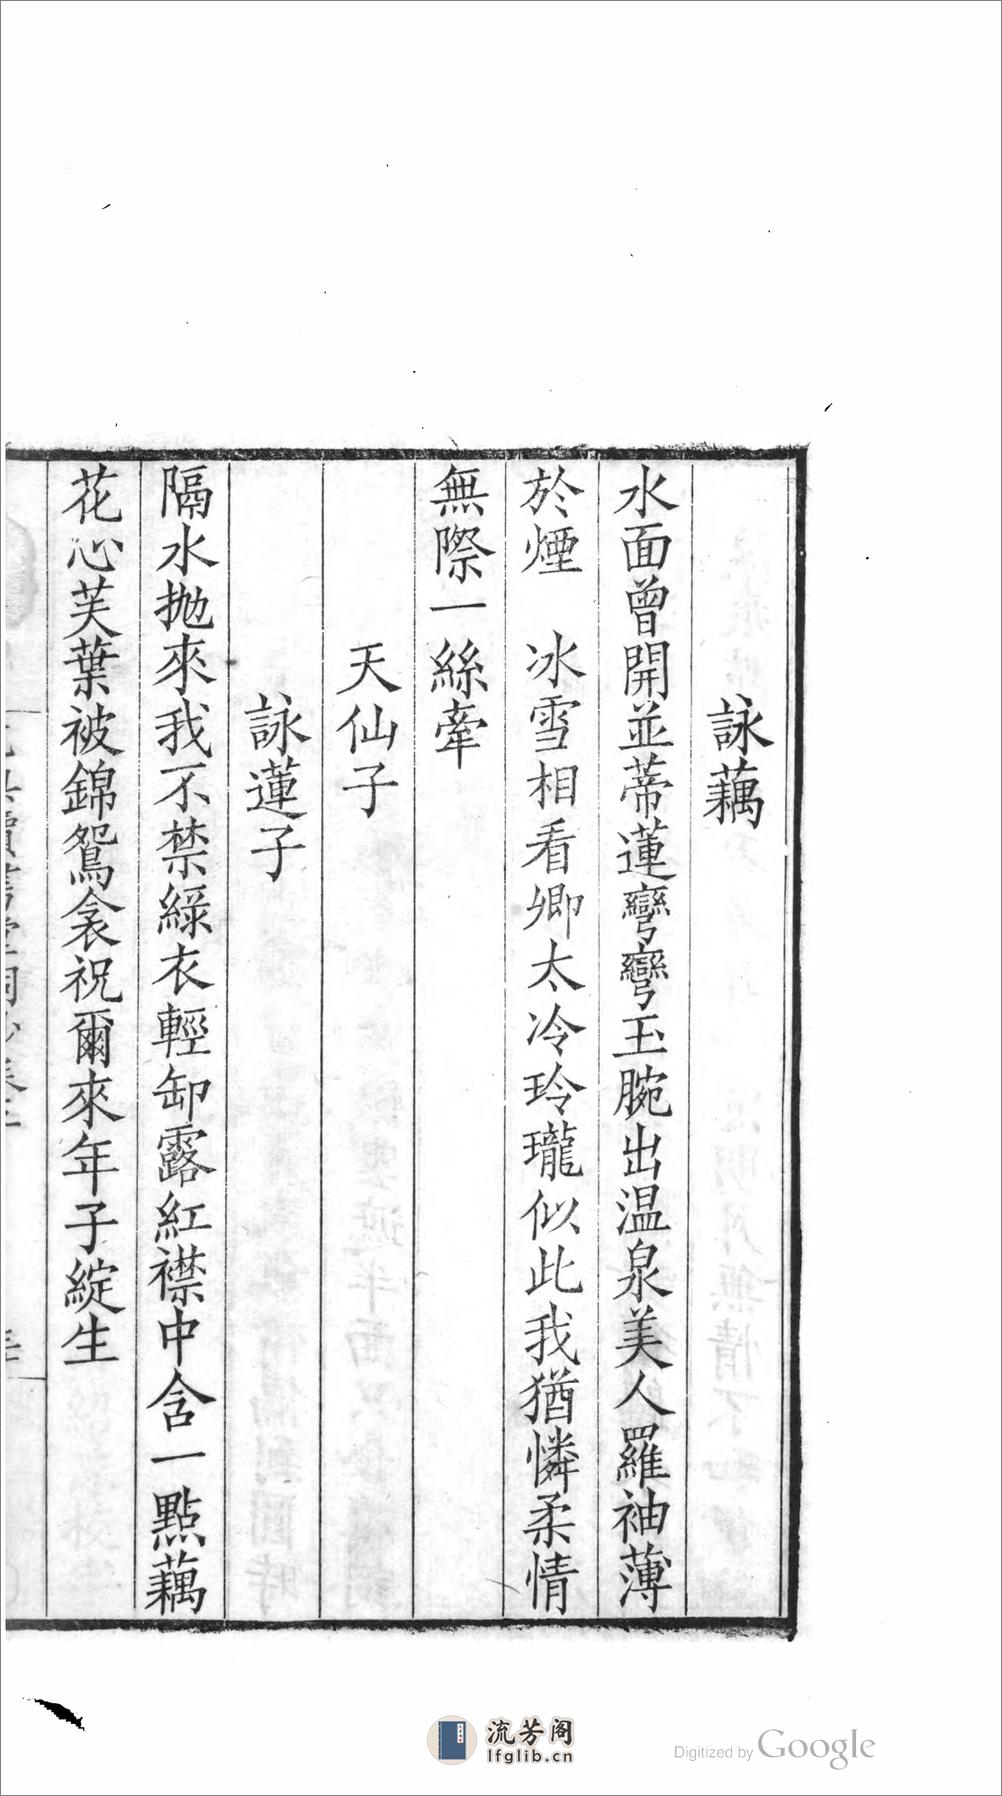 詠藕
水面曾開並蒂蓮彎彎玉腕出温泉美人羅袖薄
於煙　冰雪相看卿太冷玲瓏似此我猶憐柔情
無際一絲牽
天仙子
詠蓮子
隔水拋來我不禁綠衣輕卸露紅襟中含一點藕
花心芙葉被錦鴛衾祝爾來年子綻生
流芳阁
lfglib.cn
Digitized by Google